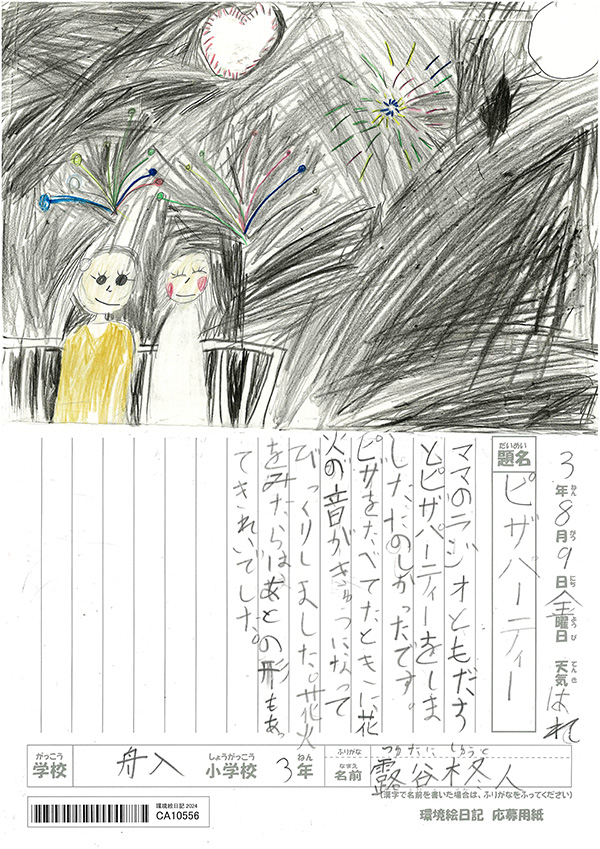 3年8月9日金曜日 天気はれ
ねん がつ にち ようび てんき
だいめい
題名
ピザパーティー
ママのラジオともだち
とピザパーティーをしま
した。たのしかったです。
ピザをたべてたときに、花
火の音がきゅうになって
びっくりしました。花火
をみたらはあとの形もあっ
てきれいでした。
がっこう
学校
舟入
しょうがっこう
小学校
ねん
3年
ふりがな
なまえ
名前
人
(漢字で名前を書いた場合は、ふりがなをふってください)
環境絵日記 応募用紙
環境絵日記 2024
CA10556